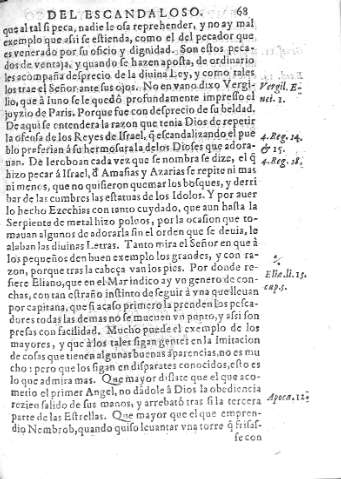 DEL ESCANDALOSO. 68
que al tal si peca, nadie le osa reprehender, y no ay mal
exemplo que assi se estienda, como el del pecador que
es venerado por su oficio y dignidad. Son estos peca-
dos de ventaja, y quando se hazen aposta, de ordinario
les acompaña desprecio de la diuina Ley, y como tales
los trae el Señor ante sus ojos. No en vano dixo Vergi-
Vergil. E-
lio, que à Iuno se le quedò profundamente impresso el
neí. 1.
joyzio de Paris. Porque fue con desprecio de su beldad.
De aqui se entendera la razon que tenia Dios de repetir
la ofensa de los Reyes de Israel, q̃ escandalizando el pue
4. Reg. 14.
blo preferian à su hermosura la de los Dioses que adora-
& 15.
uan. De Ieroboan cada vez que se nombra se dize, el q̃
4. Reg. 18.
hizo pecar à Israel, d̃ Amasias y Azarias se repite ni mas
ni menos, que no quisieron quemar los bosques, y derri
bar de las cumbres las estatuas de los Idolos. Y por auer
lo hecho Ezechias con tanto cuydado, que aun hasta la
Serpiente de metal hizo poluos, por la ocasion que to-
mauan algunos de adorarla sin el orden que se deuia, le
alaban las diuinas Letras. Tanto mira el Señor en que à
los pequeños den buen exemplo los grandes, y con ra-
zon, porque tras la cabeça van los pies. Por donde re-
fiere Eliano, que en el Mar indico ay vn genero de con-
Elia. li. 15.
chas, con tan estraño instinto de seguir à vna que lleuan
cap. 5.
por capitana, que si acaso primero la prenden los pesca-
dores todas las demas no se mueuen vn punto, y assi son
presas con facilidad. Mucho puede el exemplo de los
mayores, y que à los tales sigan gentes en la Imitacion
de cosas que tienen algunas buenas aparencias, no es mu
cho: pero que los sigan en disparates conocidos, esto es
lo que admira mas. Que mayor dislate que el que aco-
metio el primer Angel, no dádole à Dios la obediencia
rezien salido de sus manos, y arrebatò tras si la tercera
Apoca. 12.
parte de las Estrellas. Que mayor que el que empren-
dio Nembrob, quando quiso leuantar vna torre q̃ frisas-
se con